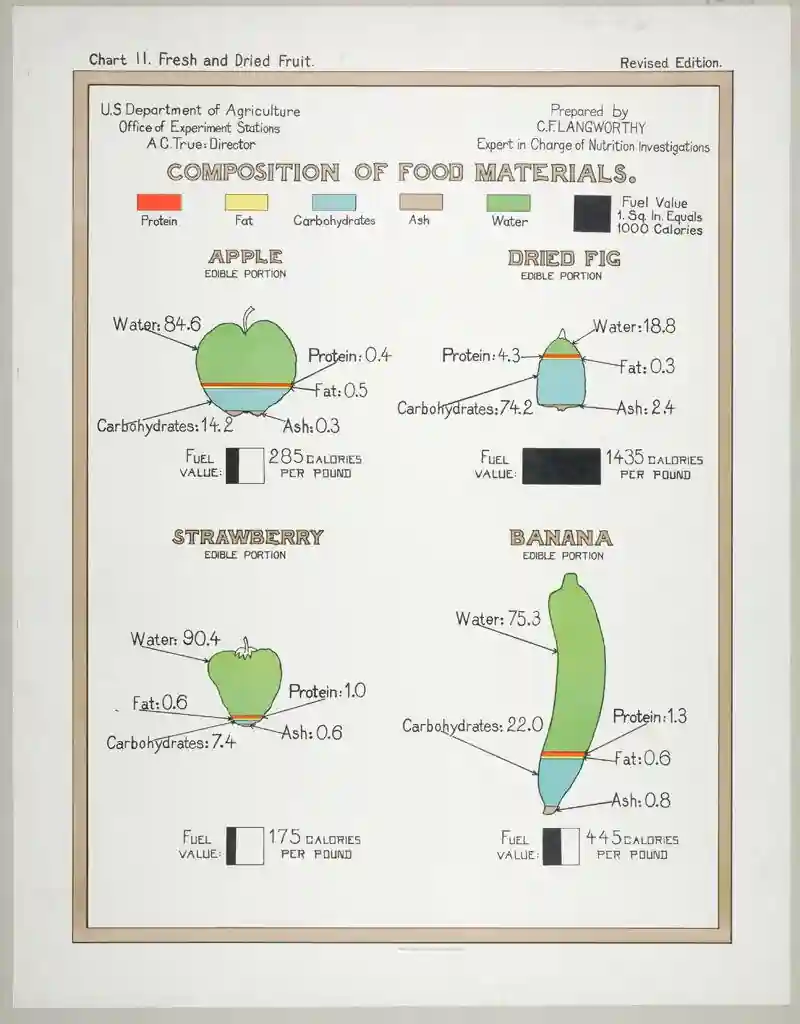 Chart 11. Fresh and Dried Fruit.
Revised Edition.
U.S Department of Agriculture
Office of Experiment Stations
A.C.True: Director
Prepared by
C.F.LANGWORTHY
Expert in Charge of Nutrition Investigations
COMPOSITION OF FOOD MATERIALS.
Protein
Fat
Carbohydrates
Ash
Water
Fuel Value
1. Sq. In. Equals
1000 Calories
APPLE
EDIBLE PORTION
Water: 84.6
Protein: 0.4
Fat: 0.5
Carbohydrates: 14.2
Ash: 0.3
FUEL
VALUE:
285 CALORIES
PER POUND
DRIED FIG
EDIBLE PORTION
Water: 18.8
Protein: 4.3
Fat: 0.3
Carbohydrates: 74.2
Ash: 2.4
FUEL
VALUE:
1435 CALORIES
PER POUND
STRAWBERRY
EDIBLE PORTION
Water: 90.4
Fat: 0.6
Protein: 1.0
Carbohydrates: 7.4
Ash: 0.6
FUEL
VALUE:
175 CALORIES
PER POUND
BANANA
EDIBLE PORTION
Water: 75.3
Carbohydrates: 22.0
Protein: 1.3
Fat: 0.6
Ash: 0.8
FUEL
VALUE:
445 CALORIES
PER POUND